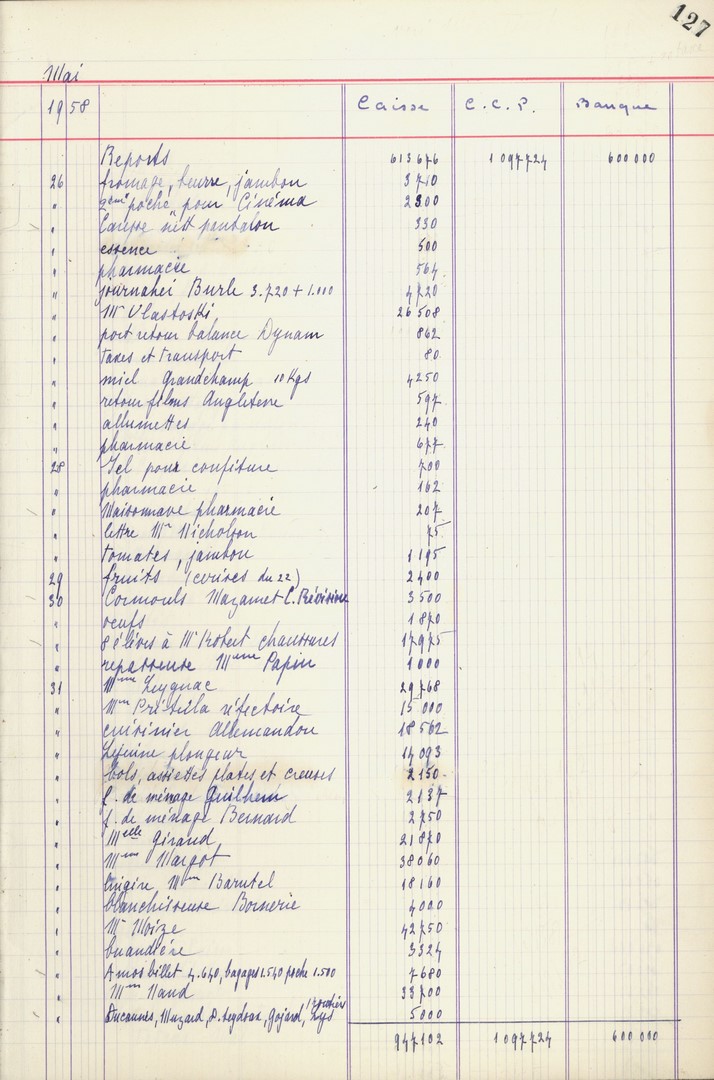 127
Mai
1958 Caisse C.C.P. Banque
Reports 613676 1097724 600000
26 fromage, beurre, jambon 3710
" 2ème poche pour Cinéma 2300
" nett pantalon 330
" essence 500
" pharmacie 564
" journalier Burle 3.720 + 1.000 4720
" Mr Vlastoski 26508
" port retour balance Dynam 862
" taxes et transport 80
" miel Grandchamp 10 Kgs 4250
" retour films Angleterre 597
" allumettes 240
" pharmacie 677
28 Gel pour confiture 700
" pharmacie 162
" Maisonnave pharmacie 207
" lettre Mr Nicholson 75
" tomates, jambon 1195
29 fruits (cerises du 22) 2400
30 Cormouls Mazamet C. 3500
" oeufs 1870
" 8 élèves à Mr Robert chaussures 17975
" repasseuse Mme Papin 1000
31 Mme Leygnac 29768
" Mme réfectoire 15000
" cuisinier Allemandou 18562
" Lejeune plongeur 14093
" bols, assiettes plates et creuses 2150
" f. de ménage Guilhem 2137
" f. de ménage Bernard 2750
" Melle Girand 21870
" Mme Margot 38060
" lingère Mme Barutel 18160
" blanchisseuse Bornerie 4000
" Mr Moize 42750
" buandière 3324
" Amos billet 4.640, bagages 1.540 poche 1.500 7680
" Mme Naud 33700
" Ducannes, Muzard, Gojard, Lys 5000
947102 1097724 600000